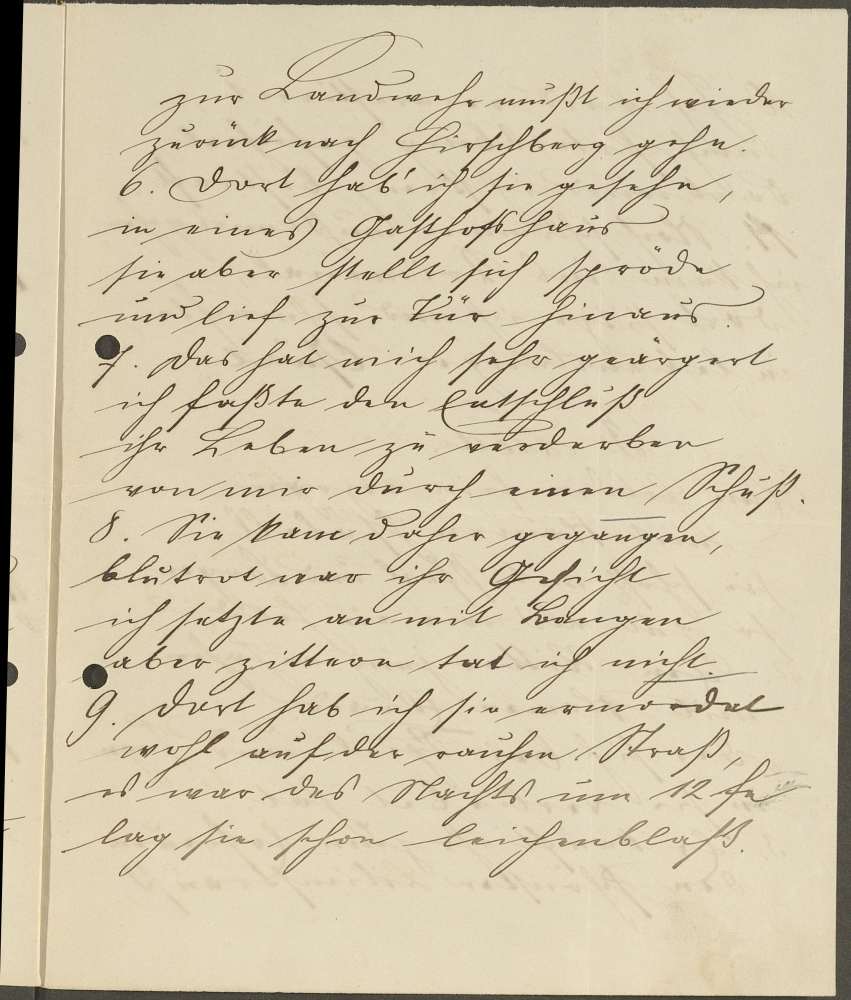 zur Landwehr mußt ich wieder
zurück nach Hirschberg gehn.
6. Dort hab' ich sie gesehn,
in eines Gasthofshaus
sie aber stellt sich spröde
und lief zur Tür hinaus.
7. Das hat mich sehr geärgert
ich faßte den Entschluß
ihr Leben zu verderben
von mir durch einen Schuß.
8. Sie kam daher gegangen,
blutrot war ihr Gesicht
ich setzte an mit Bangen
aber zittern tat ich nicht.
9. Dort hab ich sie ermordet
wohl auf der rauhen Straß,
es war des Nachts um 12
lag sie schon leichenblaß.